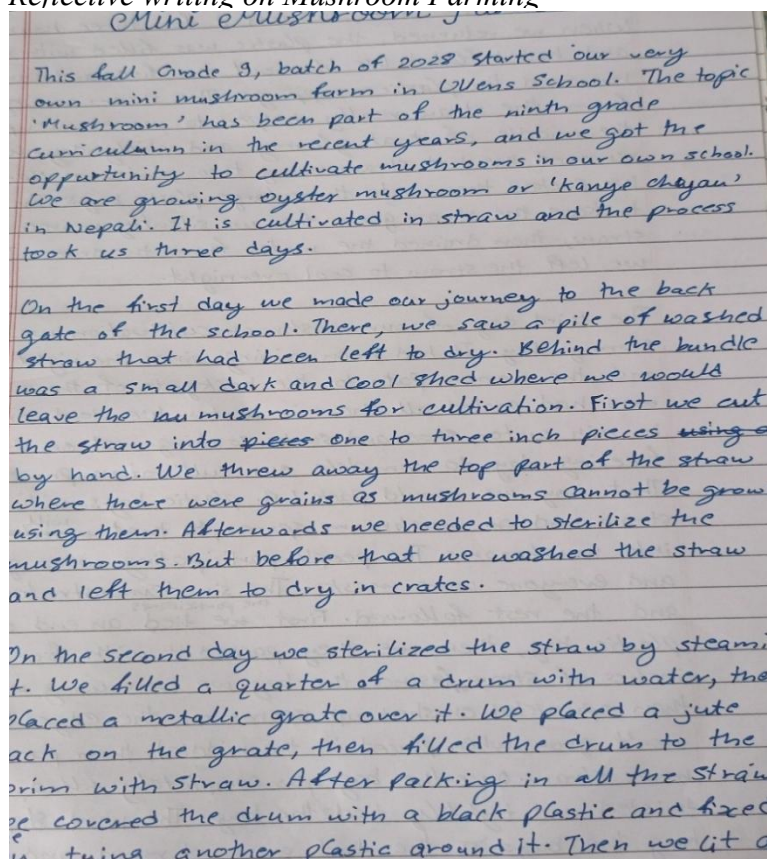 Reflective writing on Mushroom Farming
Mini Mushroom
This fall Grade 9, batch of 2028 started our very
own mini mushroom farm in Ullens School. The topic
'Mushroom' has been part of the ninth grade
curriculumn in the recent years, and we got the
oppurtunity to cultivate mushrooms in our own school.
We are growing oyster mushroom or 'Kanye chyau'
in Nepali. It is cultivated in straw and the process
took us three days.
On the first day we made our journey to the back
gate of the school. There, we saw a pile of washed
straw that had been left to dry. Behind the bundle
was a small dark and cool shed where we would
leave the mushrooms for cultivation. First we cut
the straw into pieces one to three inch pieces using
by hand. We threw away the top part of the straw
where there were grains as mushrooms cannot be grow
using them. Afterwards we needed to sterilize the
mushrooms. But before that we washed the straw
and left them to dry in crates.
On the second day we sterilized the straw by steami
t. We filled a quarter of a drum with water, the
placed a metallic grate over it. We placed a jute
ack on the grate, then filled the drum to the
brim with straw. After packing in all the straw
we covered the drum with a black plastic and fixed
tying another plastic around it. Then we lit a